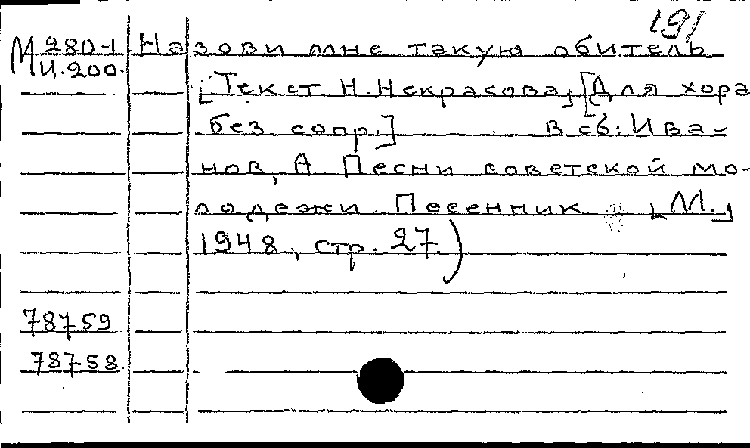 191
М 280-1 Назови мне такую обитель
И.200.
[Текст Н. Некрасова] [Для хора
без сопр.] В сб: Ива-
нов, А. Песни советской мо-
лодежи. Песенник [М.]
1948, стр. 27)
78759
78758